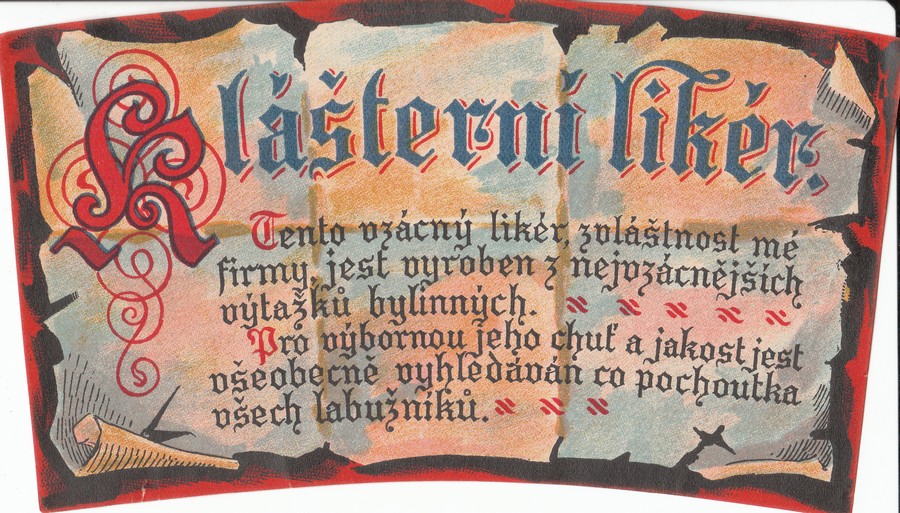 Klášterní likér.
Tento vzácný likér, zvláštnost mé
firmy, jest vyroben z nejvzácnějších
výtažků bylinných.
Pro výbornou jeho chuť a jakost jest
všeobecně vyhledáván co pochoutka
všech labužníků.